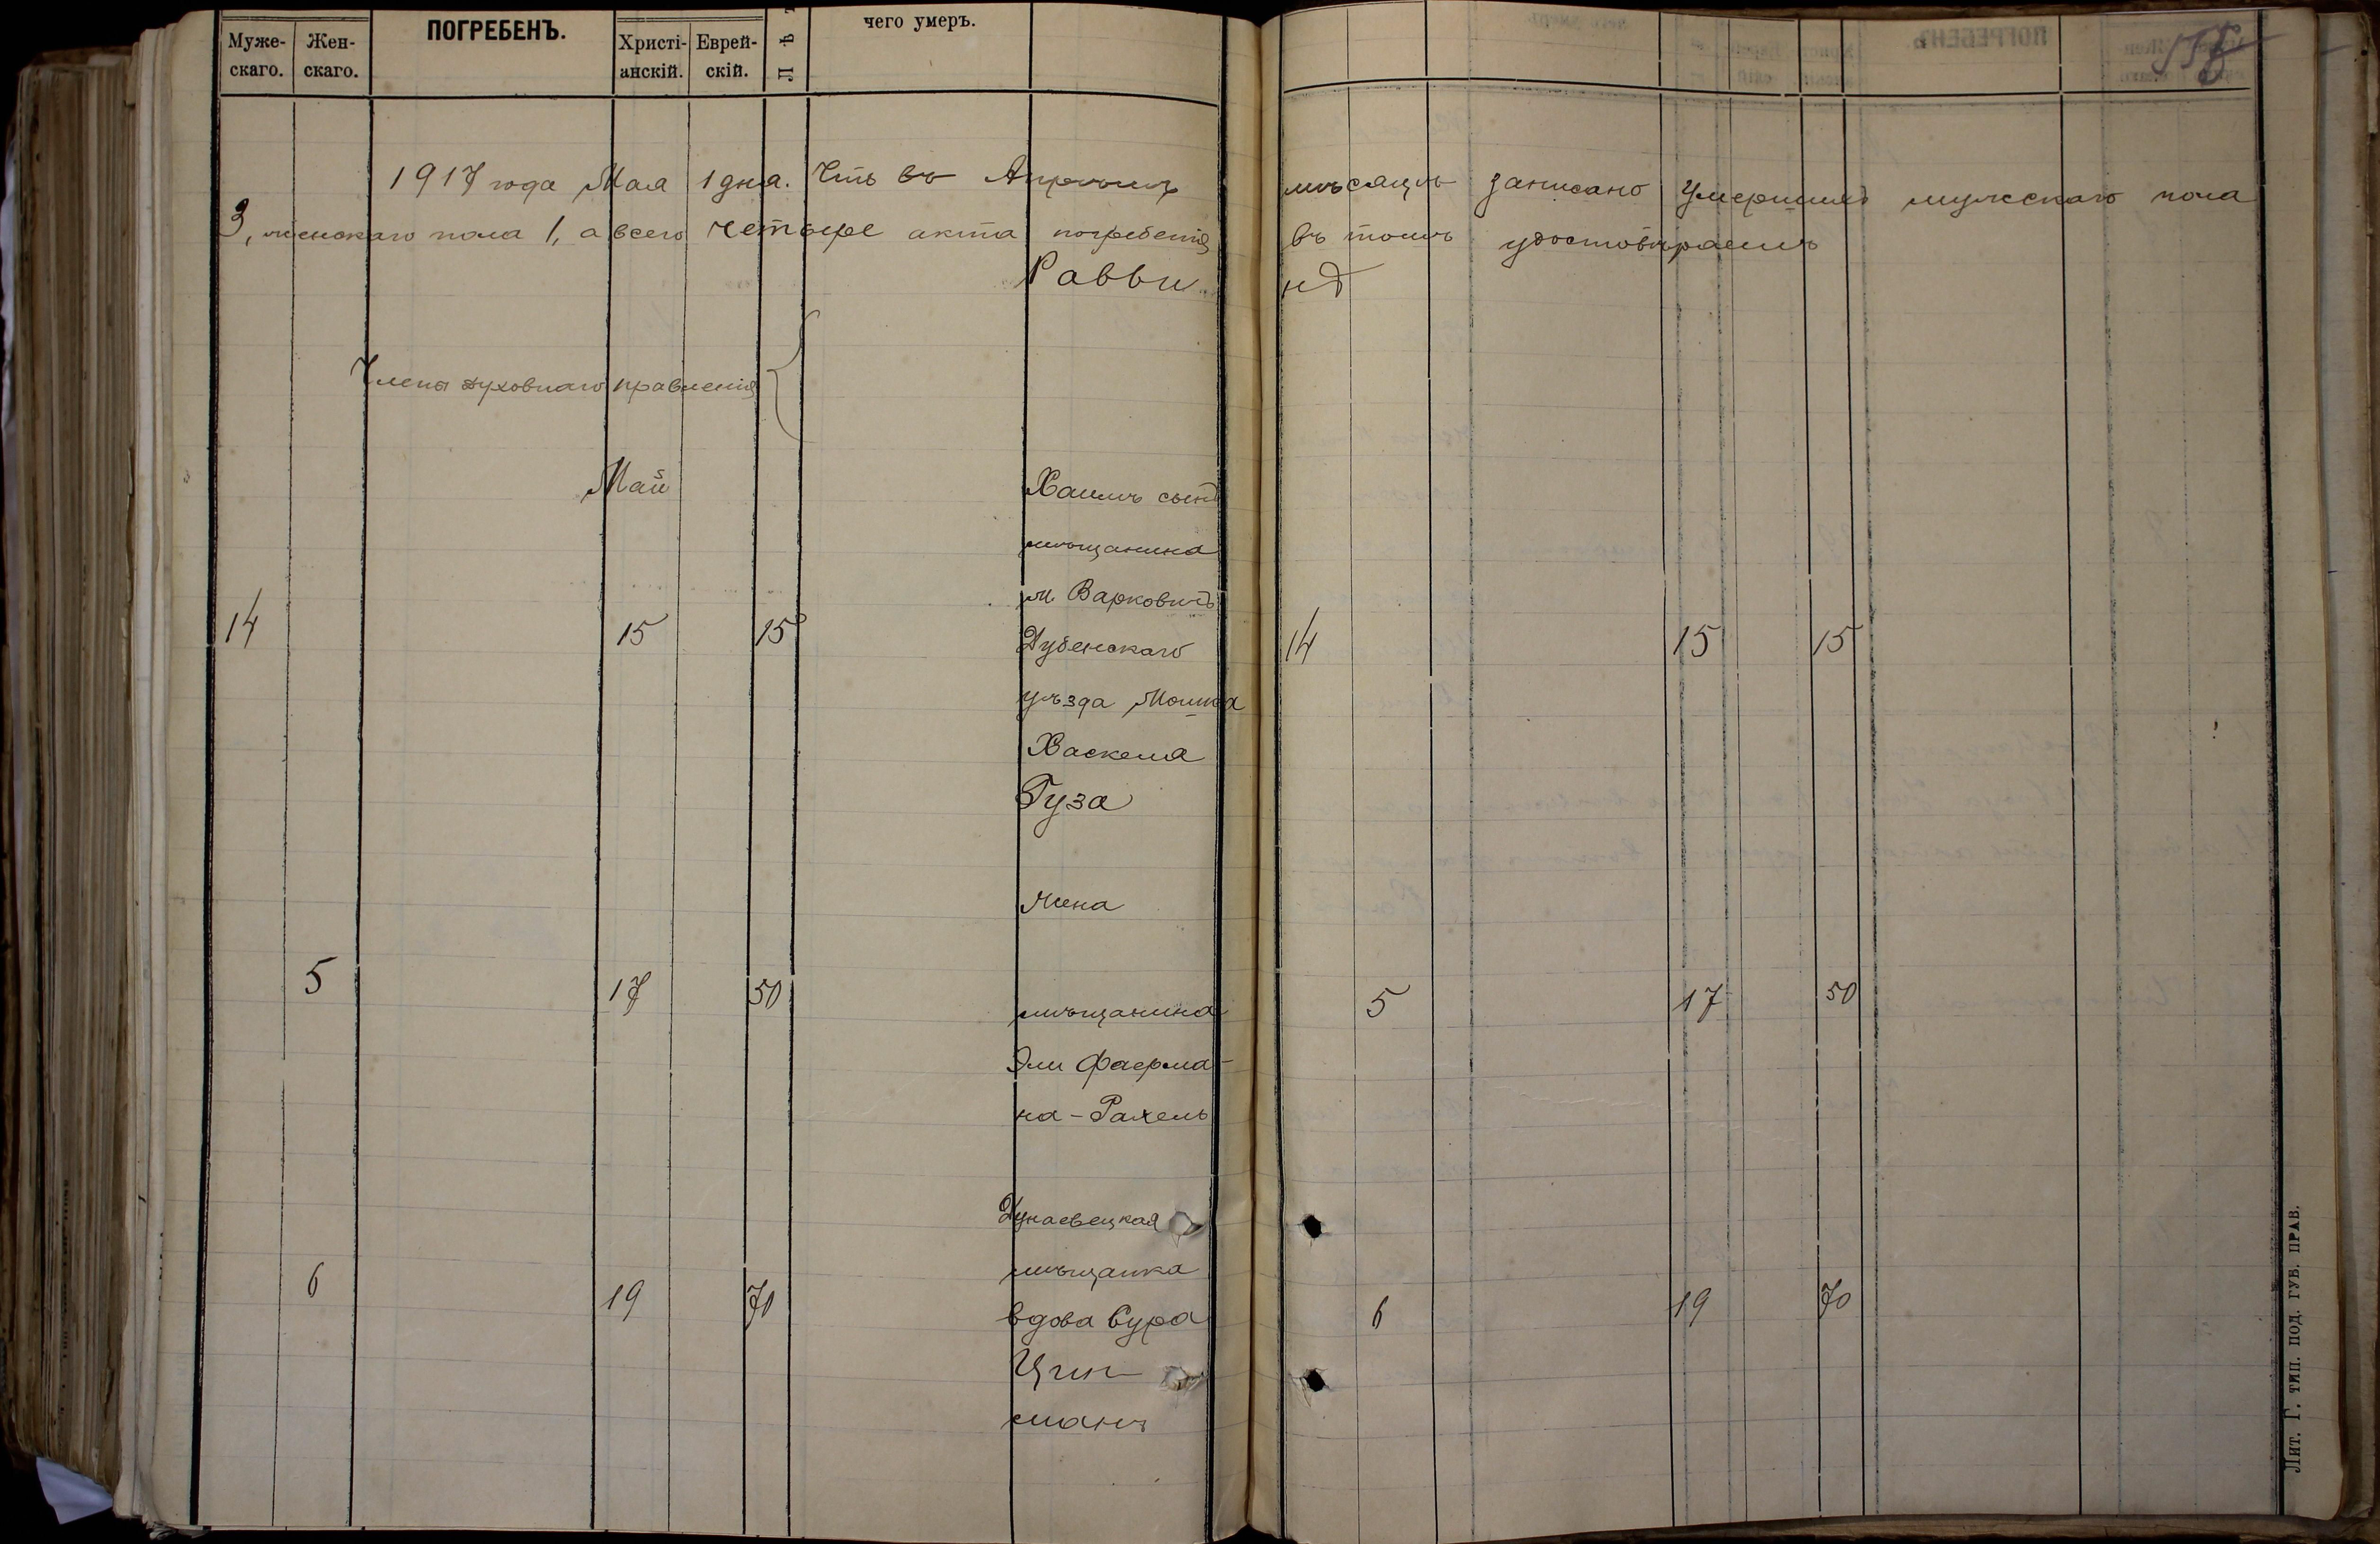 Муже-
скаго.
Жен-
скаго.
ПОГРЕБЕНЪ.
Христі-
анскій.
Еврей-
скій.
Лѣт
чего умеръ.
1917 года Мая 1 дня. Что въ Апрѣлѣ мѣсяцѣ записано умершихъ мужскаго пола
3, женскаго пола 1, а всего четыре акта погребенія въ томъ удостовѣряемъ
Раввинъ
Члены духовнаго правленія
Май
Хаимъ сынъ
мѣщанина
м. Варковичъ
14 15 15 Дубенскаго 14 15 15
уѣзда Мошка
Хаскеля
Гуза
жена
5 17 50 мѣщанина 5 17 50
Эли Фаерма-
на - Рахель
Дунаевецкая
мѣщанка
6 19 70 вдова Сура 6 19 70
Цин
манъ
Лит. Г. тип. Под. Губ. Прав.